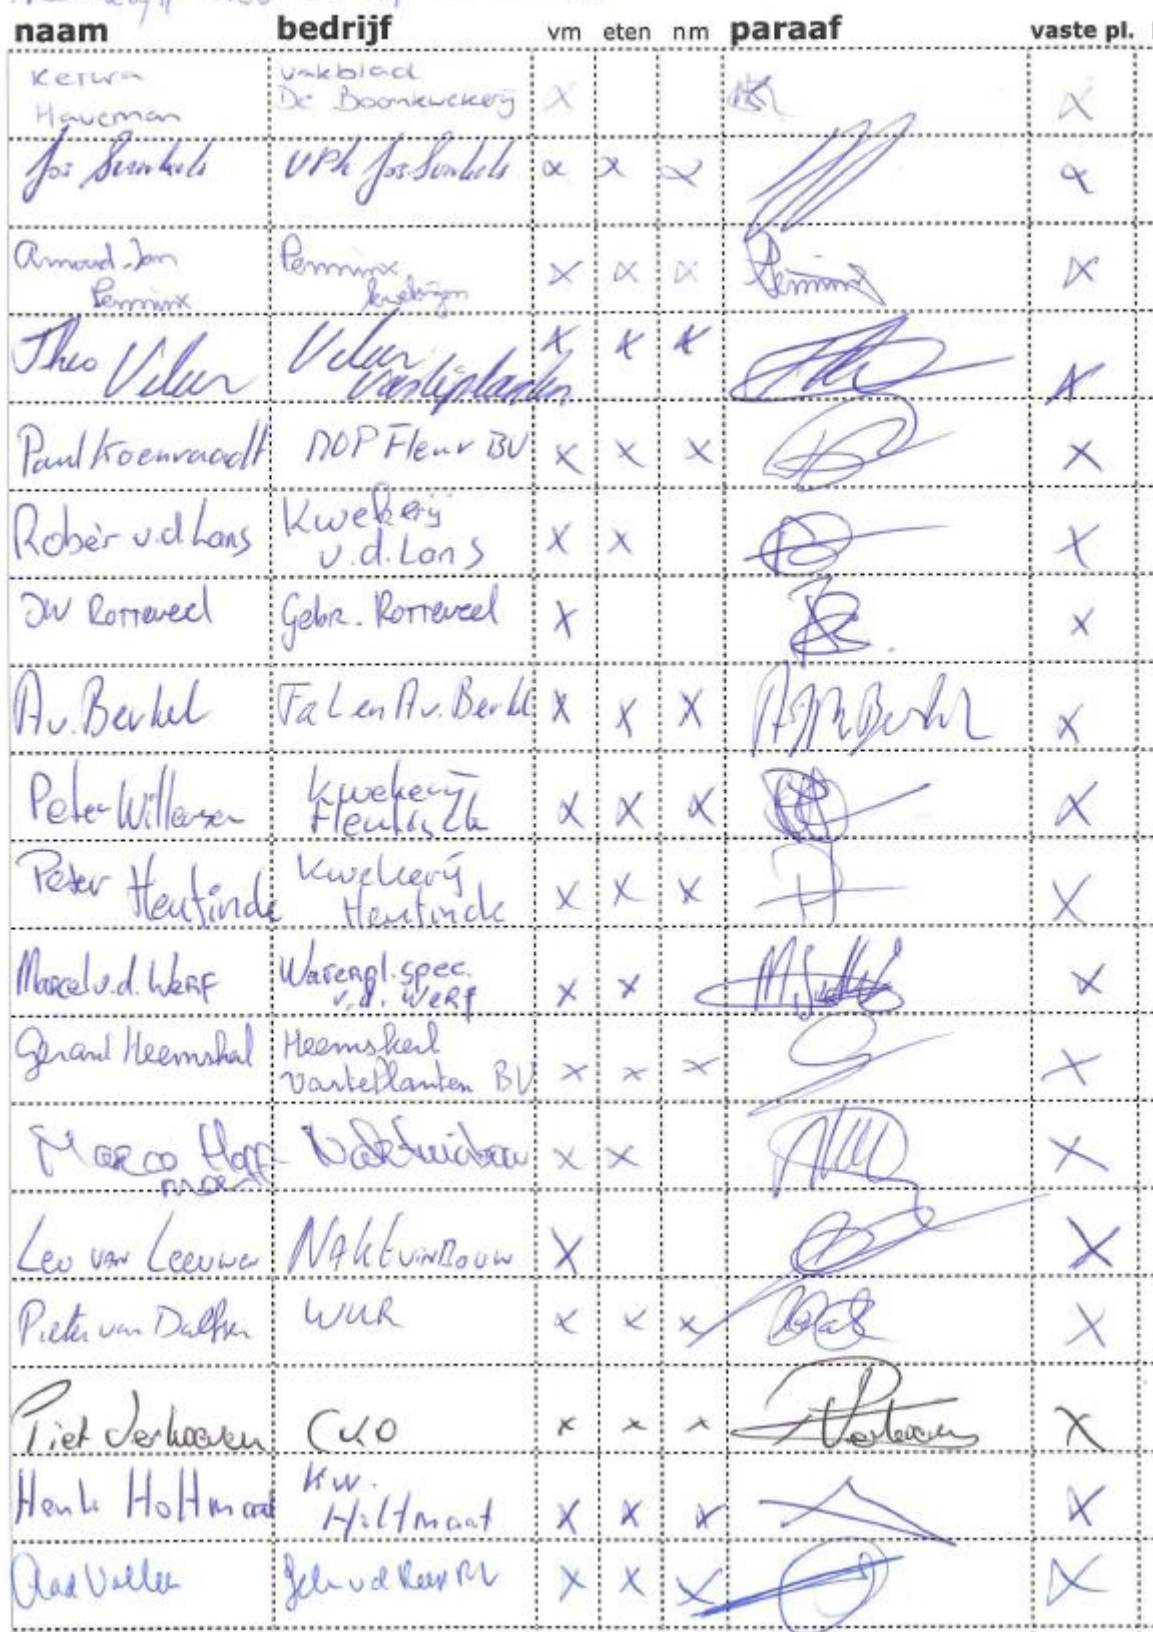 naam bedrijf vm eten nm paraaf vaste pl.
Haveman
vakblad
De Boomkwekerij X X
Jos
VPK Jos x x x x
Arnoud-Jan
Penninx
Penninx
kwekerijen x x x Penninx x
Theo
Vaste planten x x x x
Paul Koenraadt MOP Fleur BV x x x x
Robèr v.d Lans
Kwekerij
v.d. Lans x x x
JW Rotteveel Gebr. Rotteveel x x
A v. Berkel Fa L en A v. Berkel x x x x
Peter Willemsen
Kwekerij
Heutinck x x x x
Peter
Heutinck
Kwekerij
Heutinck x x x x
Marcel v.d. Werf
Waterpl. spec.
v.d. Werf x x x
Gerard Heemskerk
Heemskerk
Vaste Planten BV x x x x
Marco Hoff-
man
Naktuinbouw x x x
Leo van Leeuwen NAKtuinBouw x x
Pieter van Dalfsen WUR x x x x
Piet Verhoeven CKO x x x Verhoeven x
Henk Holtmaat
Kw.
Holtmaat x x x x
Aad Vollebregt x x x x